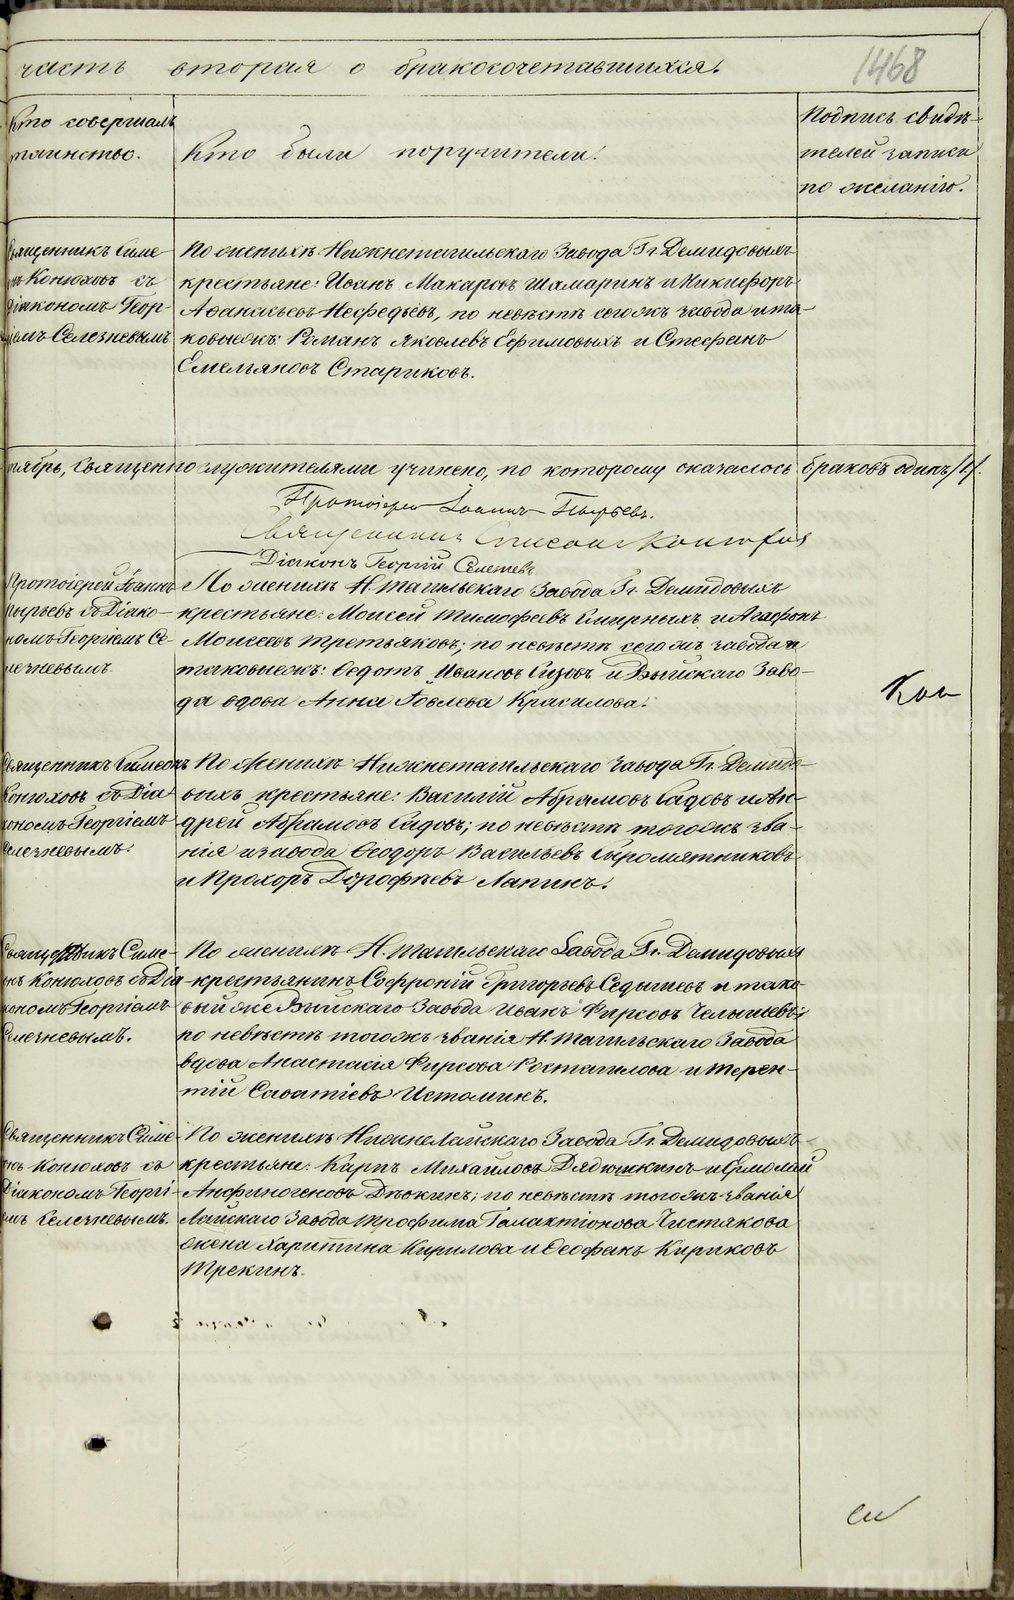 часть вторая о бракосочетавшихся.
1468
Кто совершалъ
таинство.
Кто были поручители.
Подпись свидѣ-
телей записи
по желанію.
Священникъ Симе-
онъ Конюховъ съ
Діакономъ Геор-
гіемъ Селезневымъ
По женихѣ Нижнетагильскаго Завода Гг. Демидовыхъ
крестьяне: Иванъ Макаровъ Шамаринъ и Никифоръ
Аѳанасьевъ Нефедьевъ, по невѣстѣ сегожъ завода и та-
ковыежъ: Романъ Яковлевъ Ефимовыхъ и Стефанъ
Емельяновъ Стариковъ.
тябрь, священнослужителями учинено, по которому оказалось браковъ одинъ /1/.
Протоіерей Іоаннъ Пырьевъ.
Священникъ Симеонъ Конюховъ
Діаконъ Георгій Селезневъ
Протоіерей Іоаннъ
Пырьевъ съ Діако-
номъ Георгіемъ Се-
лезневымъ
По женихѣ Н. Тагильскаго Завода Гг. Демидовыхъ
крестьяне: Моисей Тимофеевъ Смирныхъ и Агафонъ
Моисеевъ Третьяковъ; по невѣстѣ сегожъ завода и
таковыежъ: Ѳедотъ Ивановъ Сизовъ и Выйскаго Заво-
да вдова Анна Іовлева Красилова.
Кон
Священникъ Симеонъ
Конюховъ съ Діа-
кономъ Георгіемъ
Селезневымъ.
По женихѣ Нижнетагильскаго завода Гг. Демидо-
выхъ крестьяне: Василій Абрамовъ Садовъ и Ан-
дрей Абрамовъ Садовъ; по невѣстѣ тогожъ зва-
нія и завода Ѳеодоръ Васильевъ Сыромятниковъ
и Прохоръ Дорофѣевъ Лапинъ.
Священникъ Симе-
онъ Конюховъ съ Діа-
кономъ Георгіемъ
Селезневымъ.
По женихѣ Н. Тагильскаго Завода Гг. Демидовыхъ
крестьянинъ Софроній Григорьевъ Седышевъ и тако-
вый же Выйскаго Завода Иванъ Фирсовъ Челышевъ;
по невѣстѣ тогожъ званія Н. Тагильскаго Завода
вдова Анастасія Фирсова и Терен-
тій Саватіевъ Истоминъ.
Священникъ Симе-
онъ Конюховъ съ
Діакономъ Георгі-
емъ Селезневымъ.
По женихѣ НижнеЛайскаго Завода Гг. Демидовыхъ
крестьяне: Карпъ Михайловъ Дядюшкинъ и Ермолай
Анфиногеновъ Дѣкинъ; по невѣстѣ тогожъ званія
Лайскаго Завода Трофима Галактіонова Чистякова
жена Харитина Кирилова и Ѳеофанъ Кириковъ
Трекинъ.
си
METRIKI.GASO-URAL.RU